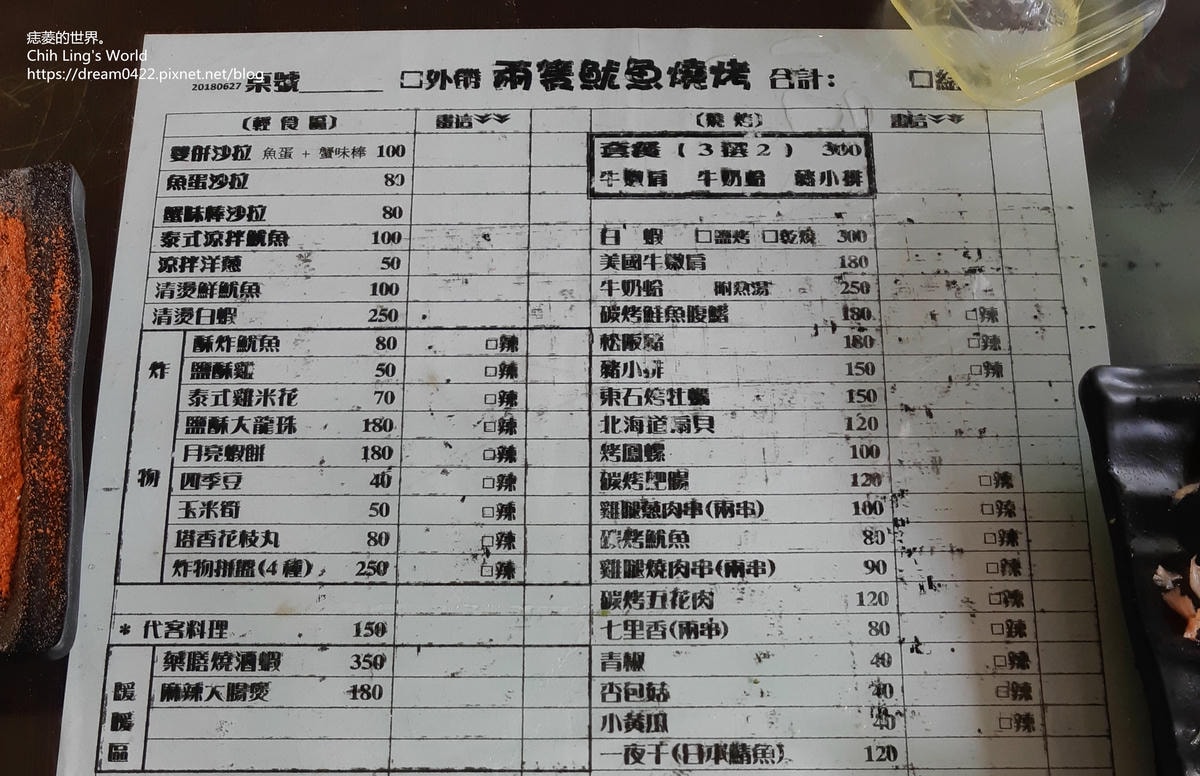 痞菱的世界。
Chih Ling's World
https://dream0422.pixnet.net/blog
20180627 桌號______ □外帶 兩隻魷魚燒烤 合計: □
(輕食區) 畫這
雙併沙拉 魚蛋 + 蟹味棒 100
魚蛋沙拉 80
蟹味棒沙拉 80
泰式涼拌魷魚 100
涼拌洋蔥 50
清燙鮮魷魚 100
清燙白蝦 250
炸物
酥炸魷魚 80 □辣
鹽酥雞 50 □辣
泰式雞米花 70 □辣
鹽酥大龍珠 180 □辣
月亮蝦餅 180 □辣
四季豆 40 □辣
玉米筍 50 □辣
塔香花枝丸 80 □辣
炸物拼盤(4種) 250 □辣
* 代客料理 150
暖暖區
藥膳燒酒蝦 350
麻辣大腸煲 180
(燒烤) 畫這
套餐 (3選2) 300
牛嫩肩 牛奶蛤 豬小排
白蝦 □鹽烤 □乾燒 300
美國牛嫩肩 180
牛奶蛤 附魚湯 250
碳烤鮭魚腹鰭 180 □辣
松阪豬 180 □辣
豬小排 150 □辣
東石烤牡蠣 150
北海道扇貝 120
烤鳳螺 100
碳烤肥腸 120 □辣
雞腿蔥肉串(兩串) 100 □辣
碳烤魷魚 80 □辣
雞腿燒肉串(兩串) 90 □辣
碳烤五花肉 120 □辣
七里香(兩串) 80 □辣
青椒 40 □辣
杏包菇 40 □辣
小黃瓜 40 □辣
一夜干(日本鯖魚) 120